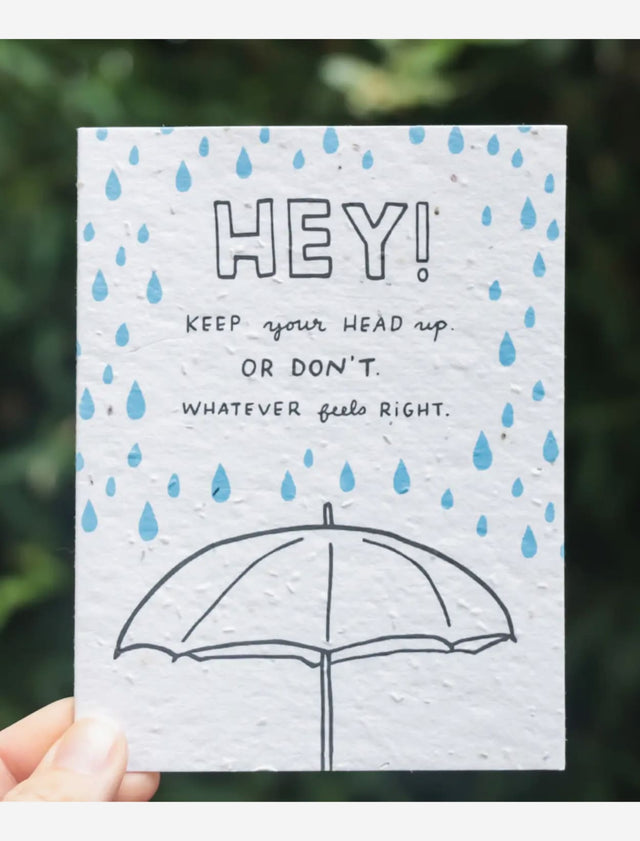 HEY!
KEEP your HEAD up.
OR DON'T.
WHATEVER feels RiGHT.